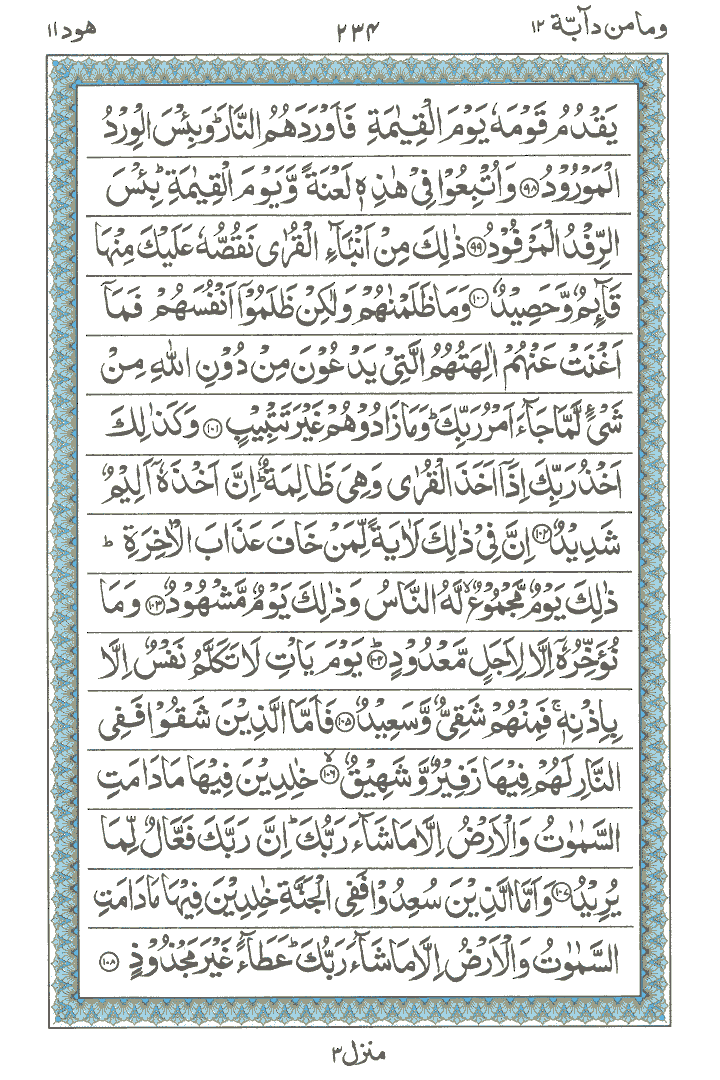 وما من دآبّة ۱۲
۲۳۴
هود ۱۱
يَقْدُمُ قَوْمَهٗ يَوْمَ الْقِيٰمَةِ فَاَوْرَدَهُمُ النَّارَ ؕ وَبِئْسَ الْوِرْدُ
الْمَوْرُوْدُ ﴿۹۸﴾ وَاُتْبِعُوْا فِيْ هٰذِهٖ لَعْنَةً وَّيَوْمَ الْقِيٰمَةِ ؕ بِئْسَ
الرِّفْدُ الْمَرْفُوْدُ ﴿۹۹﴾ ذٰلِكَ مِنْ اَنْۢبَآءِ الْقُرٰى نَقُصُّهٗ عَلَيْكَ مِنْهَا
قَآئِمٌ وَّحَصِيْدٌ ﴿۱۰۰﴾ وَمَا ظَلَمْنٰهُمْ وَلٰكِنْ ظَلَمُوْۤا اَنْفُسَهُمْ فَمَاۤ
اَغْنَتْ عَنْهُمْ اٰلِهَتُهُمُ الَّتِيْ يَدْعُوْنَ مِنْ دُوْنِ اللّٰهِ مِنْ
شَيْءٍ لَّمَّا جَآءَ اَمْرُ رَبِّكَ ؕ وَمَا زَادُوْهُمْ غَيْرَ تَتْبِيْبٍ ﴿۱۰۱﴾ وَكَذٰلِكَ
اَخْذُ رَبِّكَ اِذَاۤ اَخَذَ الْقُرٰى وَهِيَ ظَالِمَةٌ ؕ اِنَّ اَخْذَهٗۤ اَلِيْمٌ
شَدِيْدٌ ﴿۱۰۲﴾ اِنَّ فِيْ ذٰلِكَ لَاٰيَةً لِّمَنْ خَافَ عَذَابَ الْاٰخِرَةِ ؕ
ذٰلِكَ يَوْمٌ مَّجْمُوْعٌ ۙ لَّهُ النَّاسُ وَذٰلِكَ يَوْمٌ مَّشْهُوْدٌ ﴿۱۰۳﴾ وَمَا
نُؤَخِّرُهٗۤ اِلَّا لِاَجَلٍ مَّعْدُوْدٍ ؕ ﴿۱۰۴﴾ يَوْمَ يَاْتِ لَا تَكَلَّمُ نَفْسٌ اِلَّا
بِاِذْنِهٖ ۚ فَمِنْهُمْ شَقِيٌّ وَّسَعِيْدٌ ﴿۱۰۵﴾ فَاَمَّا الَّذِيْنَ شَقُوْا فَفِي
النَّارِ لَهُمْ فِيْهَا زَفِيْرٌ وَّشَهِيْقٌ ۙ ﴿۱۰۶﴾ خٰلِدِيْنَ فِيْهَا مَا دَامَتِ
السَّمٰوٰتُ وَالْاَرْضُ اِلَّا مَا شَآءَ رَبُّكَ ؕ اِنَّ رَبَّكَ فَعَّالٌ لِّمَا
يُرِيْدُ ﴿۱۰۷﴾ وَاَمَّا الَّذِيْنَ سُعِدُوْا فَفِي الْجَنَّةِ خٰلِدِيْنَ فِيْهَا مَا دَامَتِ
السَّمٰوٰتُ وَالْاَرْضُ اِلَّا مَا شَآءَ رَبُّكَ ؕ عَطَآءً غَيْرَ مَجْذُوْذٍ ﴿۱۰۸﴾
منزل ۳